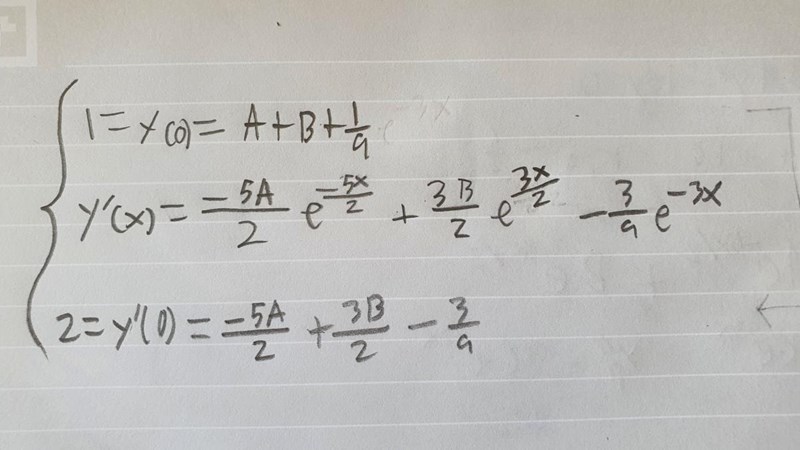 1 = y(0) = A + B + 1/9
y'(x) = -5A/2 e^(-5x/2) + 3B/2 e^(3x/2) - 3/9 e^(-3x)
2 = y'(0) = -5A/2 + 3B/2 - 3/9